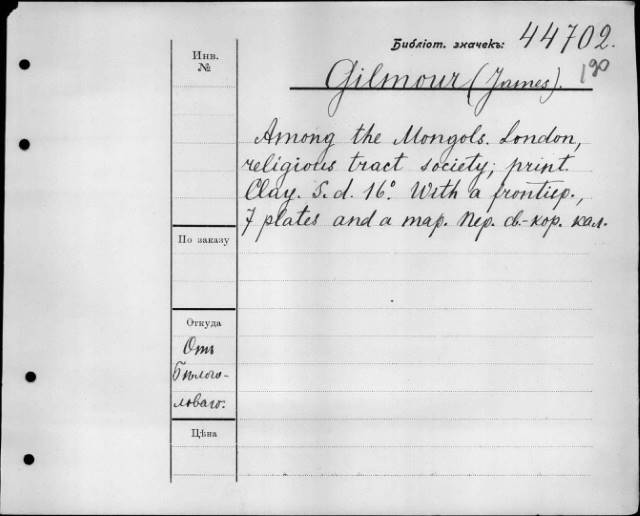 Библіот. значекъ: 44702.
190
Gilmour (James).
Инв.
№
Among the Mongols. London,
religious tract society; print.
Clay. S. d. 16º. With a frontisp.,
7 plates and a map. Пер. св.-кор. кал.
По заказу
Откуда
Отъ
Бѣлого-
ловаго.
Цѣна